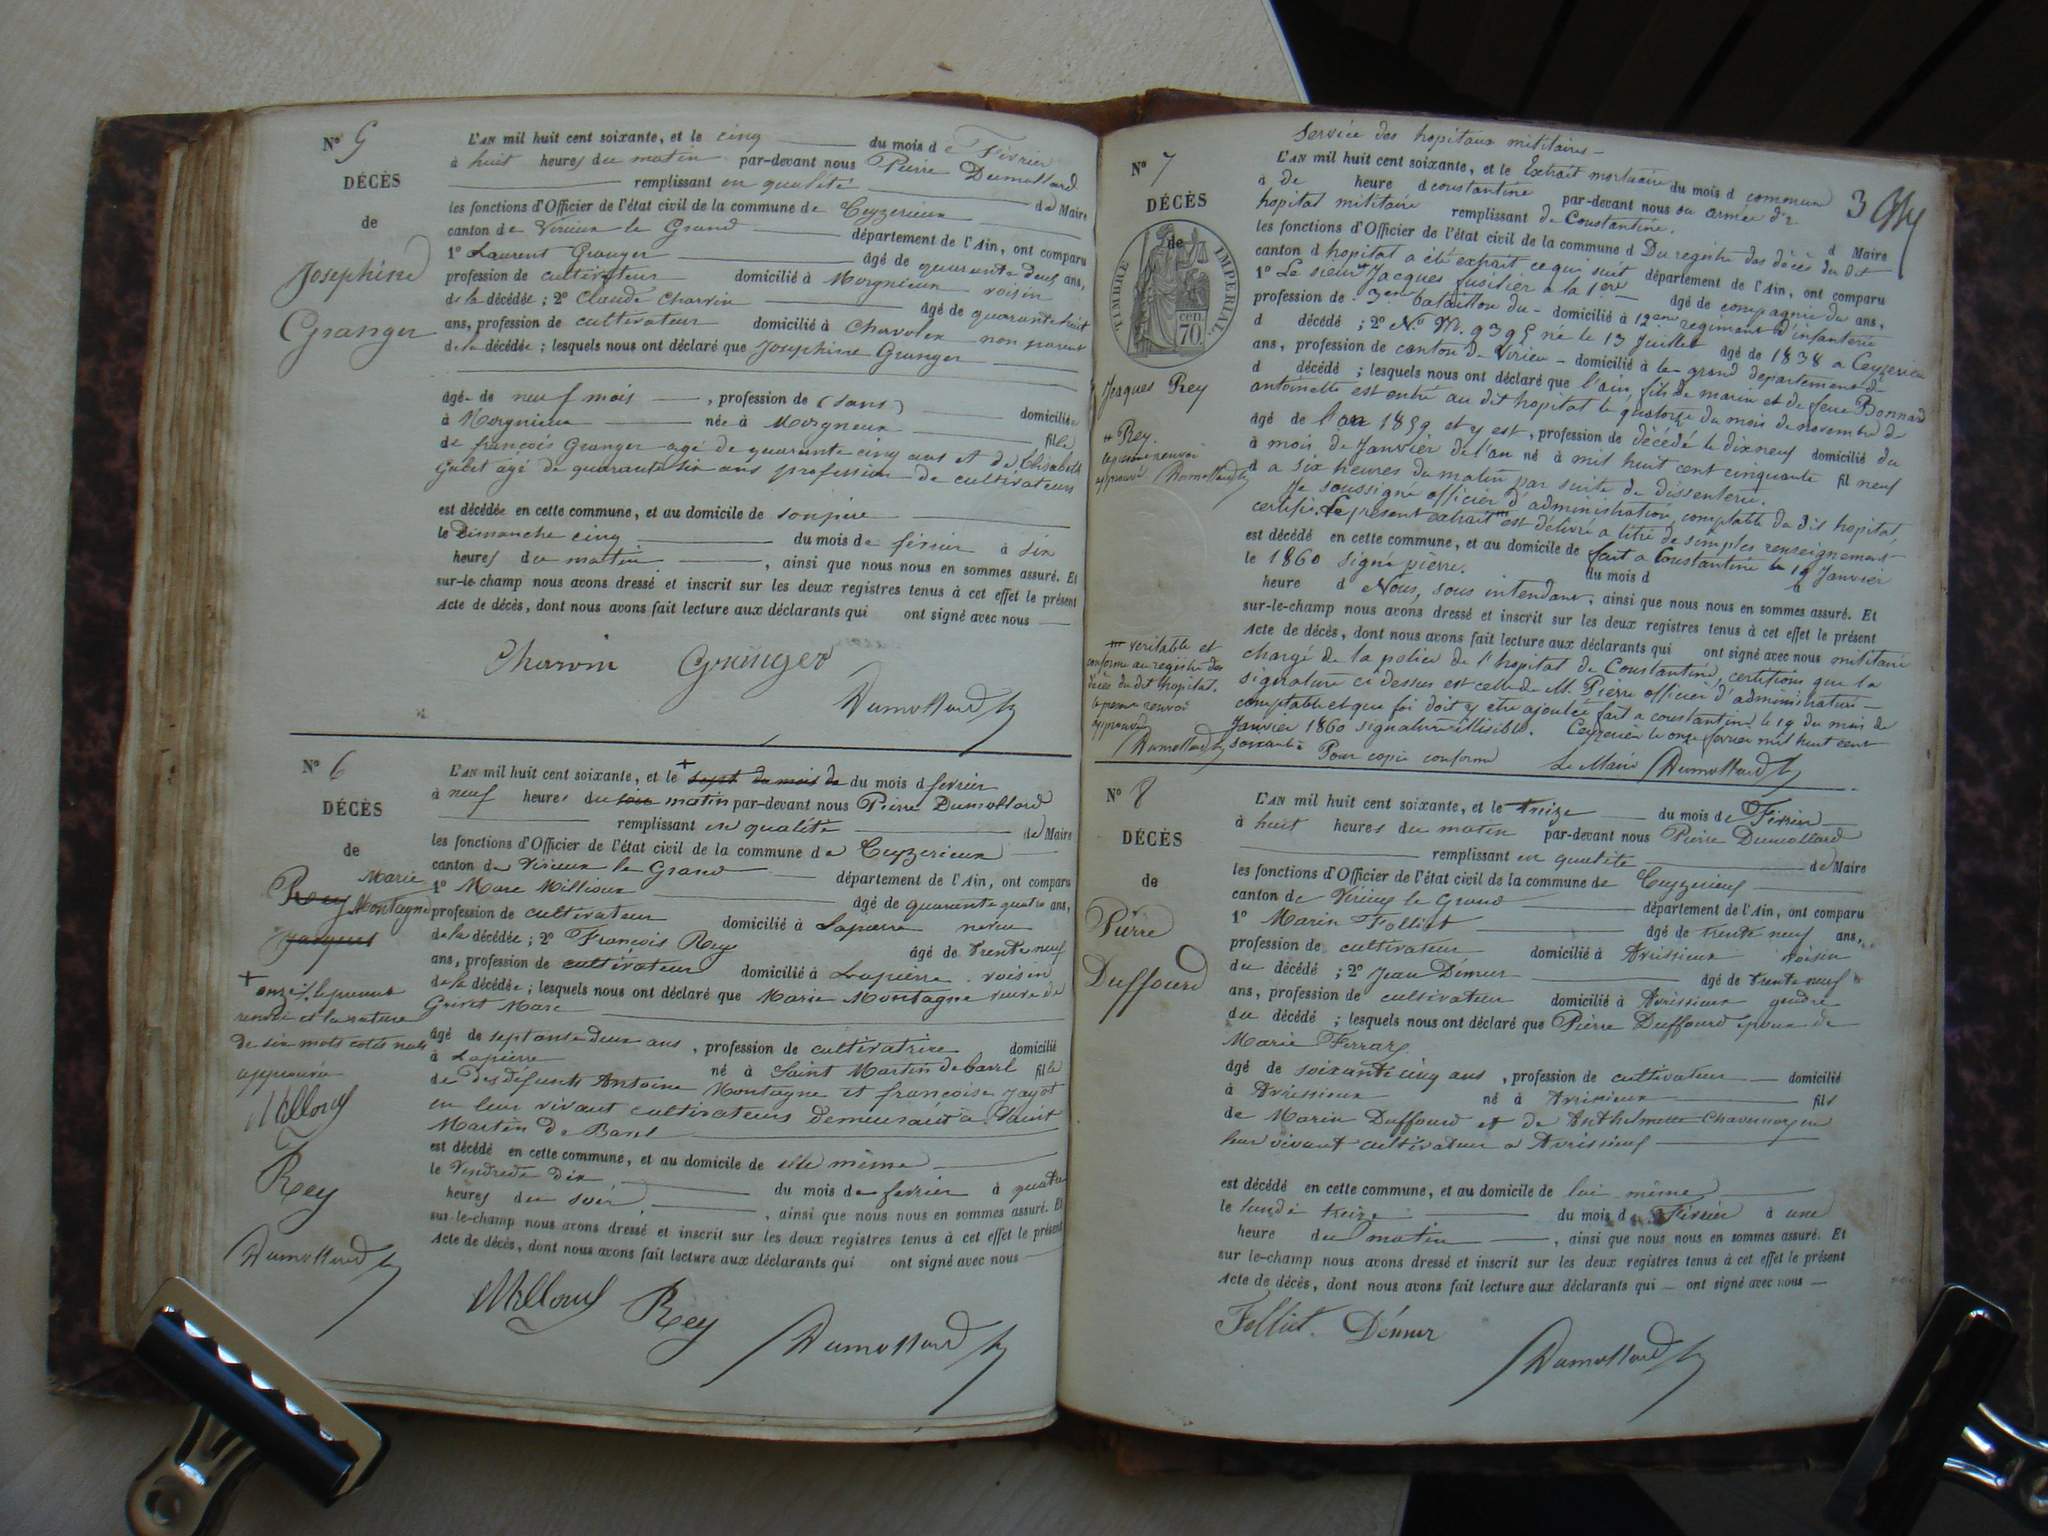 N° 5
DÉCÈS
de
Josephine
Granger
L'AN mil huit cent soixante, et le cinq du mois de Février
à huit heures du matin par-devant nous Pierre Dumollard
remplissant en qualité de Maire
les fonctions d'Officier de l'état civil de la commune de Ceyzerieux
canton de Virieux le Grand département de l'Ain, ont comparu
1° Laurent Granger âgé de quarante deux ans,
profession de cultivateur domicilié à Morgnieux voisin
de la décédée ; 2° Claude Charvin âgé de quarante huit
ans, profession de cultivateur domicilié à Chavolex non parent
de la décédée ; lesquels nous ont déclaré que Josephine Granger
âgé de neuf mois , profession de (sans) domiciliée
à Morgnieux née à Morgneux fille
de françois Granger agé de quarante cinq ans et de Elisabeth
Gudet âgé de quarante six ans profession de cultivateurs
est décédée en cette commune, et au domicile de son père
le Dimanche cinq du mois de février à six
heures du matin , ainsi que nous nous en sommes assuré. Et
sur-le-champ nous avons dressé et inscrit sur les deux registres tenus à cet effet le présent
Acte de décès, dont nous avons fait lecture aux déclarants qui ont signé avec nous
Charvin Granger
Dumollard
N° 6
DÉCÈS
de
Marie
Rey Montagne
Jacques
+ onze. le present
renvoi et la rature
de six mots cotés nuls
approuvée
Millioux
Rey
Dumollard
L'AN mil huit cent soixante, et le + sept du mois de du mois d février
à neuf heures du soir matin par-devant nous Pierre Dumollard
remplissant en qualité de Maire
les fonctions d'Officier de l'état civil de la commune de Ceyzerieux
canton de Virieux le Grand département de l'Ain, ont comparu
1° Marc Millioux âgé de quarante quatre ans,
profession de cultivateur domicilié à Lapierre neveu
de la décédée ; 2° François Rey âgé de trente neuf
ans, profession de cultivateur domicilié à Lapierre voisin
de la décédée ; lesquels nous ont déclaré que Marie Montagne veuve de
Marc
âgé de septante deux ans , profession de cultivatrice domicilié
à Lapierre né à Saint Martin de bavel fille
de des défunts Antoine Montagne et françoise Jayot
en leur vivant cultivateurs demeurant à Saint
Martin de Bavel
est décédé en cette commune, et au domicile de elle même
le Vendredi dix du mois de février à quatre
heures du soir , ainsi que nous nous en sommes assuré. Et
sur-le-champ nous avons dressé et inscrit sur les deux registres tenus à cet effet le présent
Acte de décès, dont nous avons fait lecture aux déclarants qui ont signé avec nous
Millioux Rey
Dumollard
3
N° 7
DÉCÈS
de
TIMBRE IMPERIAL
70 cen.
Jacques Rey
# Rey.
le présent renvoi
approuvé Dumollard
veritable et
conforme au registre des
décès du dit hopital.
le present renvoi
approuvé
Dumollard
Service des hopitaux militaires
L'AN mil huit cent soixante, et le Extrait mortuaire du mois d commune
à de heure d constantine par-devant nous ou armée d'
hopital militaire remplissant de Constantine.
les fonctions d'Officier de l'état civil de la commune d Du registre des décès du dit d Maire
canton d hopital a été extrait ce qui suit département de l'Ain, ont comparu
1° Le sieur # Jacques fusilier a la 1ere âgé de compagnie du ans,
profession de 3eme bataillon du domicilié à 12eme regiment d'infanterie
d décédé ; 2° N° M. 9395 né le 13 Juillet âgé de 1838 a Ceyzerieu
ans, profession de canton de Virieu domicilié à le grand departement de
d décédé ; lesquels nous ont déclaré que l'ain, fils de marin et de feue Bonnard
antoinette est entré au dit hopital le quatorze du mois de novembre de
âgé de l'an 1859 et y est , profession de décédé le dixneuf domicilié du
à mois de Janvier de l'an né à mil huit cent cinquante fil neuf
d a six heures du matin par suite de dissenterie.
Je soussigné officier d'administration, comptable du dit hopital,
certifie. Le present extrait est délivré a titre de simples renseignement
est décédé en cette commune, et au domicile de fait a Constantine le 19 Janvier
le 1860 signé pierre. du mois d à
heure d Nous, sous intendant , ainsi que nous nous en sommes assuré. Et
sur-le-champ nous avons dressé et inscrit sur les deux registres tenus à cet effet le présent
Acte de décès, dont nous avons fait lecture aux déclarants qui ont signé avec nous militaire
chargé de la police de l'hopital de Constantine, certifions que la
signature ci dessus est celle de M. Pierre officier d'administrati-
comptable et que foi doit y etre ajoutée fait a constantine le 19 du mois de
Janvier 1860 signature illisible. Ceyzerieu le onze fevrier mil huit cent
soixante Pour copie conforme Le Maire Dumollard
N° 8
DÉCÈS
de
Pierre
Duffourd
L'AN mil huit cent soixante, et le treize du mois de Février
à huit heures du matin par-devant nous Pierre Dumollard
remplissant en qualité de Maire
les fonctions d'Officier de l'état civil de la commune de Ceyzerieux
canton de Virieux le Grand département de l'Ain, ont comparu
1° Marin Folliet âgé de trente neuf ans,
profession de cultivateur domicilié à Avrissieux voisin
du décédé ; 2° Jean Démur âgé de trente neuf
ans, profession de cultivateur domicilié à Avrissieux gendre
du décédé ; lesquels nous ont déclaré que Pierre Duffourd époux de
Marie Ferraz
âgé de soixante cinq ans , profession de cultivateur domicilié
à Avrissieux né à Avrissieux fils
de Marin Duffourd et de Anthelmette en
leur vivant cultivateur a Avrissieux
est décédé en cette commune, et au domicile de lui même
le lundi treize du mois de Février à une
heure du matin , ainsi que nous nous en sommes assuré. Et
sur le-champ nous avons dressé et inscrit sur les deux registres tenus à cet effet le présent
Acte de décès, dont nous avons fait lecture aux déclarants qui ont signé avec nous
Folliet. Démur
Dumollard